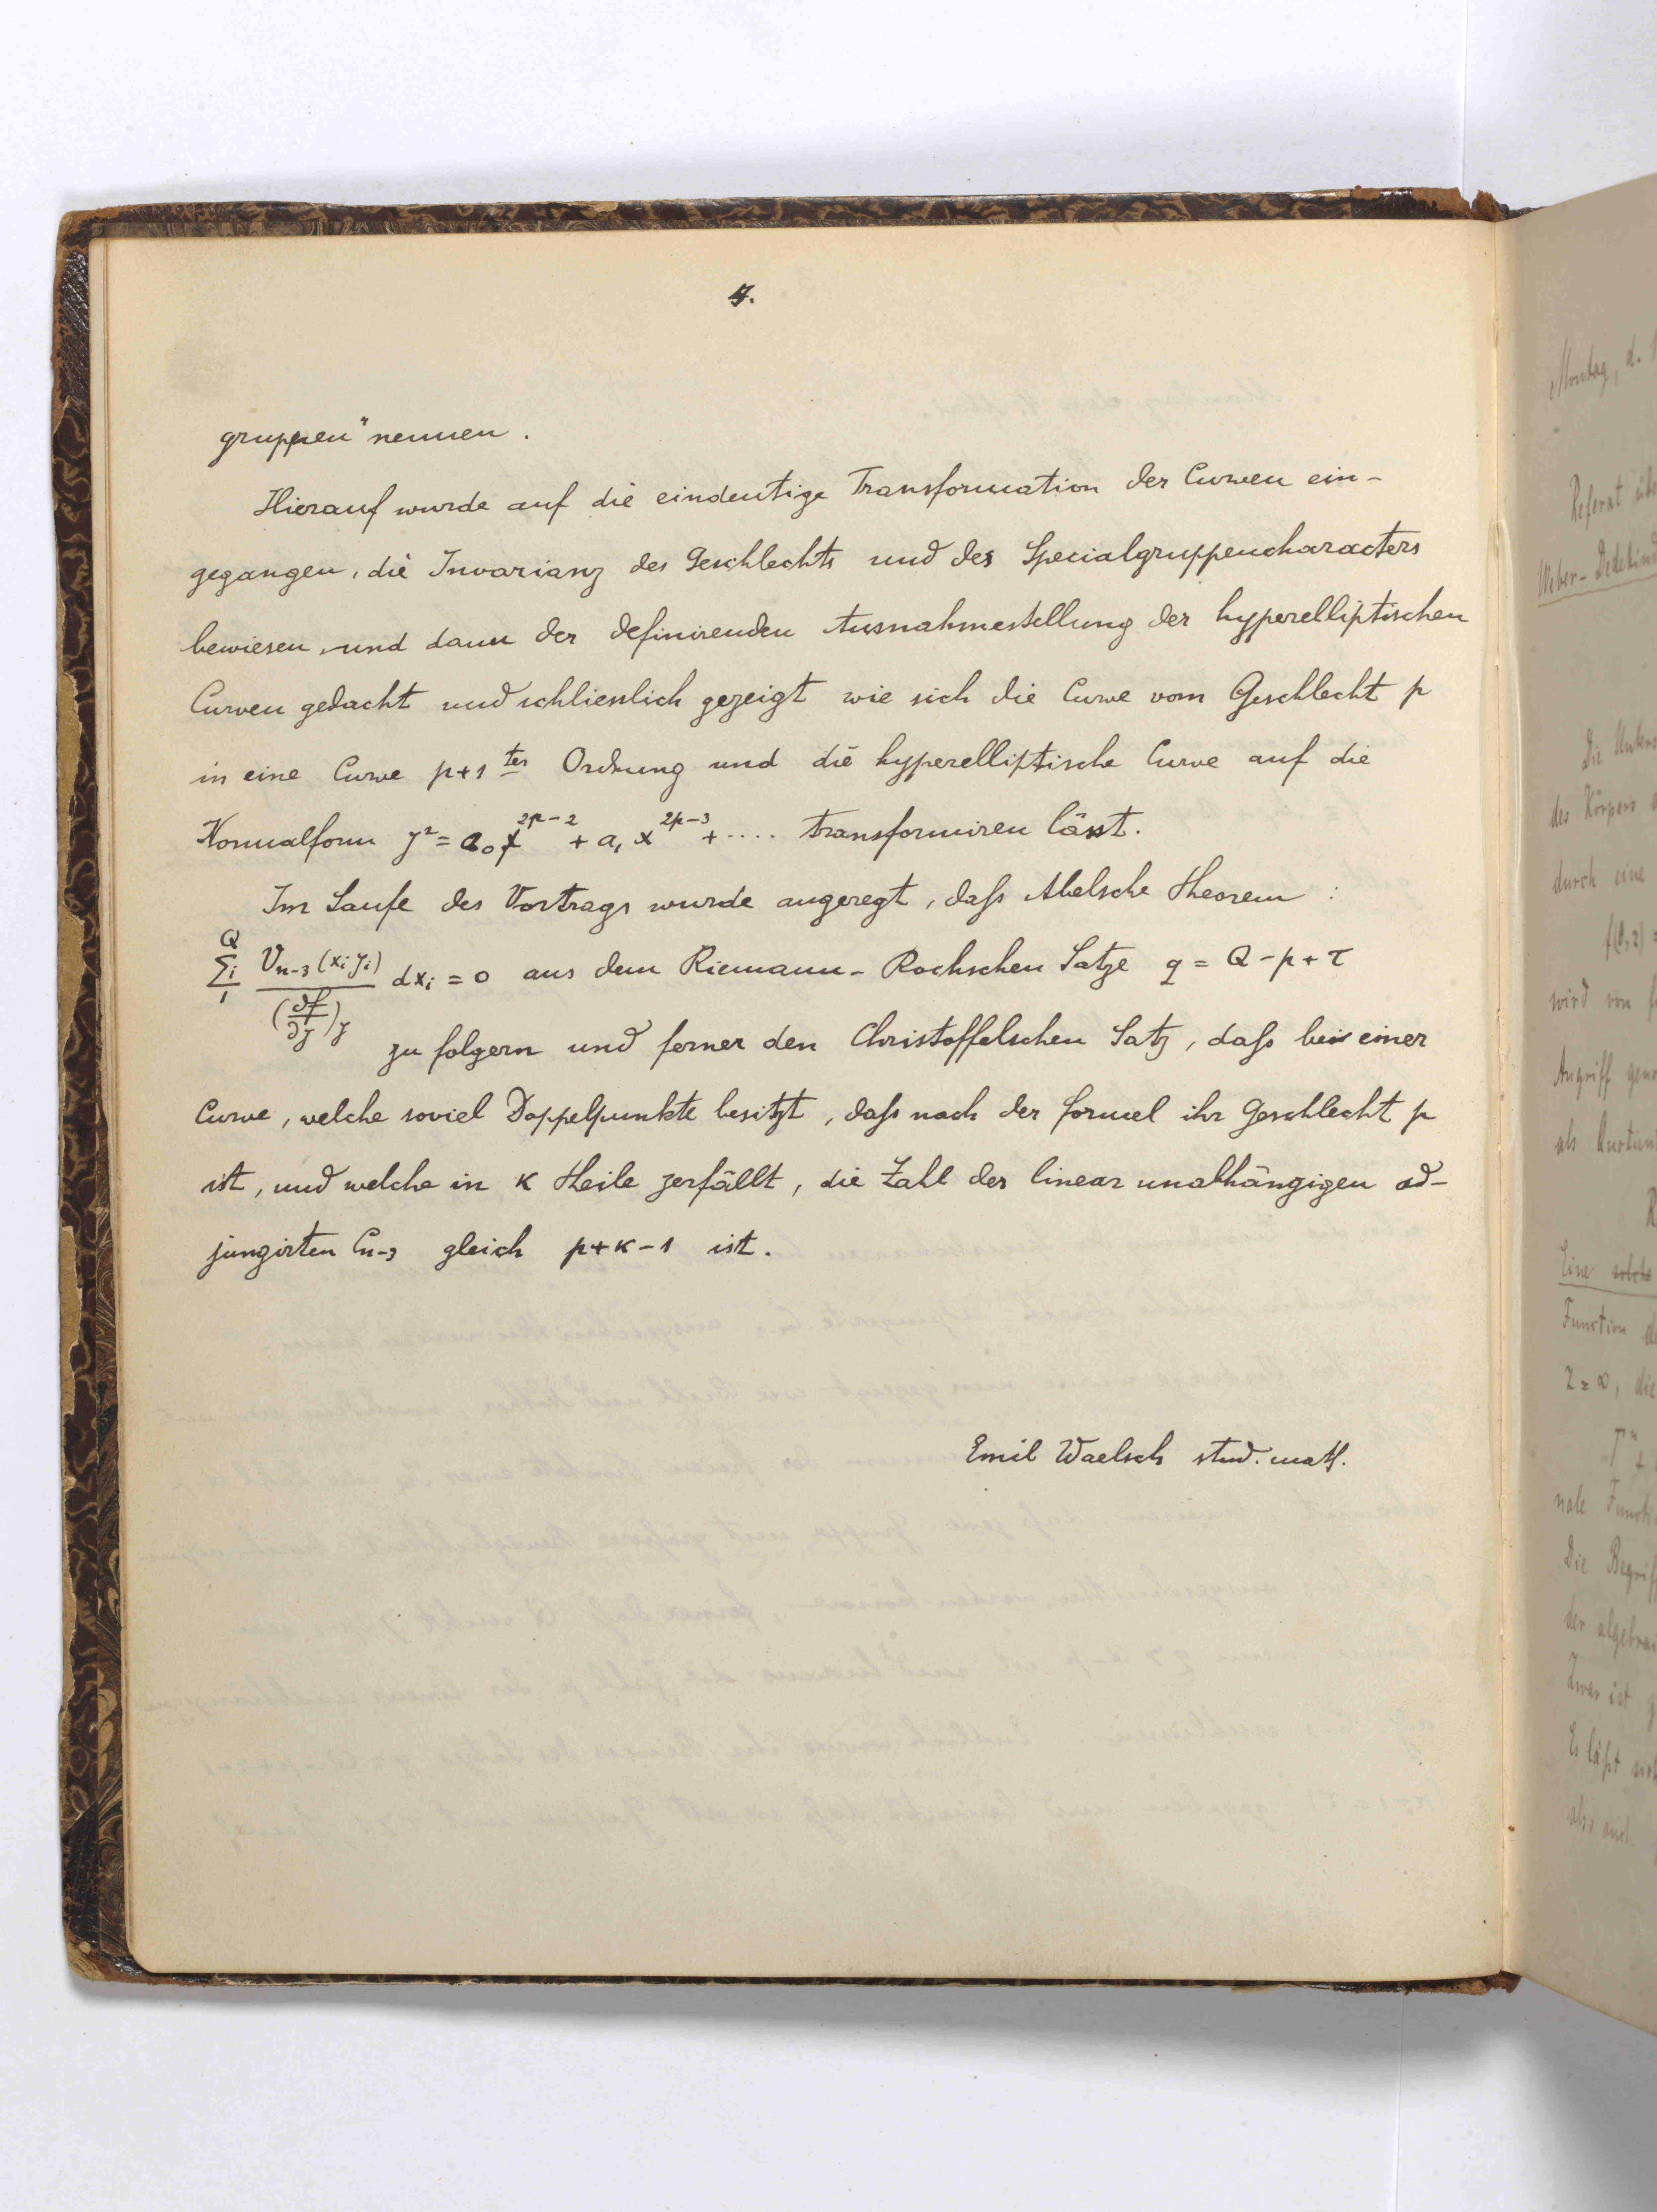 4.
gruppen" nennen.
Hierauf wurde auf die eindeutige Transformation der Curven ein-
gegangen, die Invarianz des Geschlechts und des Specialgruppencharacters
bewiesen, und dann der definirenden Ausnahmestellung der hyperelliptischen
Curven gedacht und schliesslich gezeigt wie sich die Curve vom Geschlecht p
in eine Curve p+1 ter Ordnung und die hyperelliptische Curve auf die
Normalform y² = a₀x^{2p-2} + a₁x^{2p-3} + .... transformiren lässt.
Im Laufe des Vortrags wurde angeregt, daſs Abelsche Theorem :
\sum_{1}^{Q}{}_i \frac{V_{n-3}(x_i y_i)}{(\frac{∂f}{∂y})_y} dx_i = 0 aus dem Riemann-Rochschen Satze q = Q - p + τ
zu folgern und ferner den Christoffelschen Satz, daſs bei einer
Curve, welche soviel Doppelpunkte besitzt, daſs nach der Formel ihr Geschlecht p
ist, und welche in κ Theile zerfällt, die Zahl der linear unabhängigen ad-
jungirten C_{n-3} gleich p+κ-1 ist.
Emil Waelsch stud. math.
Montag, d.
Referat
Weber-Dedekind
Die
des Körpers
durch eine
wird von
Angriff
als
Eine solche
Function
z = ∞, die
Die
der
Zwar ist
Es läſst
also auch